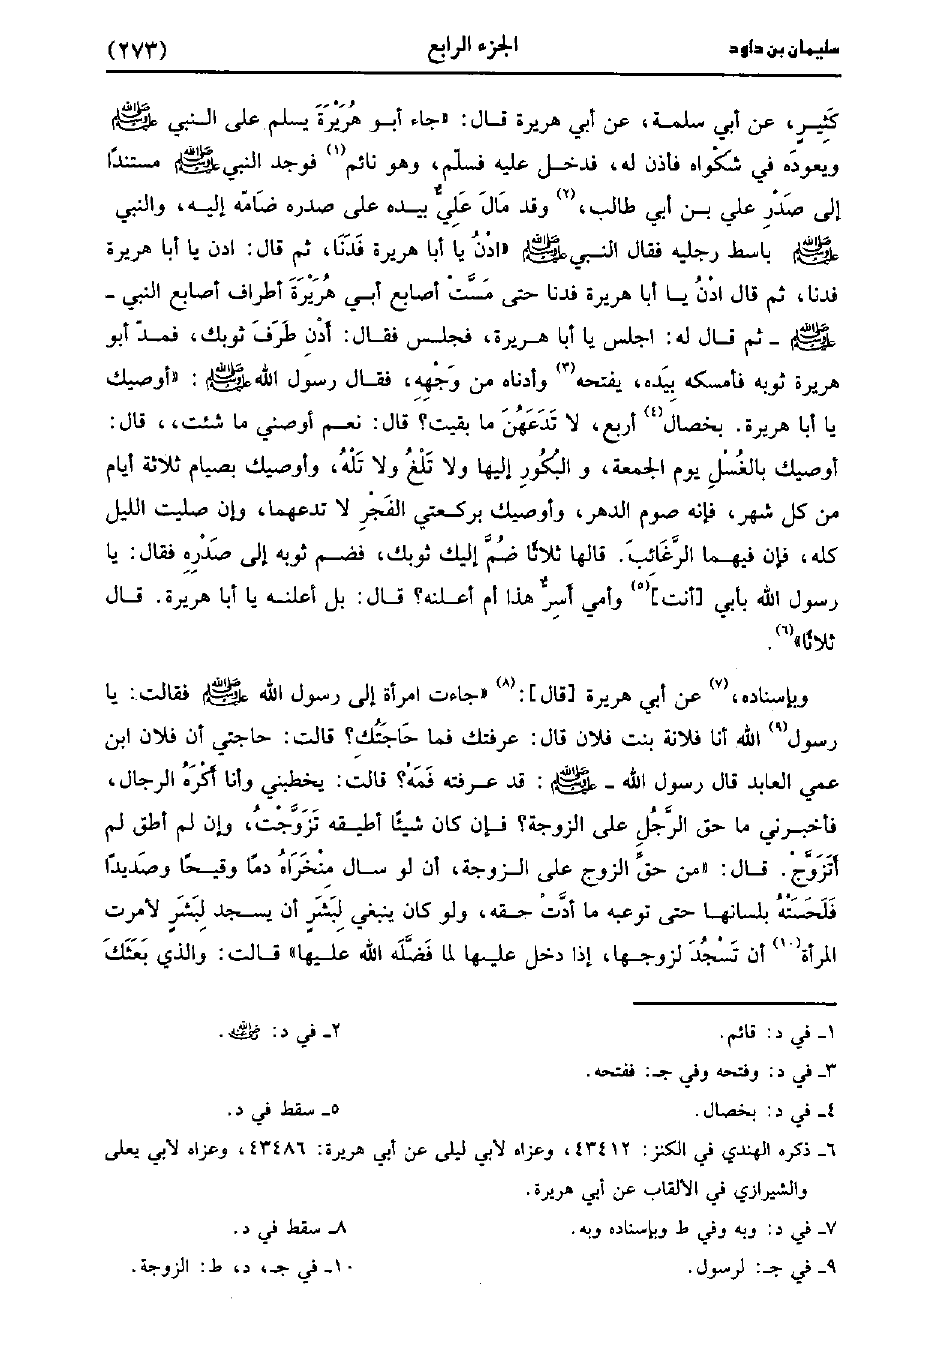 سليمان بن داود الجزء الرابع (٢٧٣)
كثيرٍ، عن أبي سلمة، عن أبي هريرة قال: «جاء أبو هُرَيْرَةَ يسلم على النبي ﷺ
ويعودَه في شكْواه فأذن له، فدخل عليه فسلّم، وهو نائم(١) فوجد النبي ﷺ مستندًا
إلى صَدْرِ علي بن أبي طالب،(٢) وقد مَالَ عَلِيٌّ بيده على صدره ضَامّه إليه، والنبي
ﷺ باسط رجليه فقال النبي ﷺ «ادْنُ يا أبا هريرة فَدَنَا، ثم قال: ادن يا أبا هريرة
فدنا، ثم قال ادْنُ يا أبا هريرة فدنا حتى مَسَّتْ أصابع أبي هُرَيْرَةَ أطراف أصابع النبي -
ﷺ - ثم قال له: اجلس يا أبا هريرة، فجلس فقال: أَدْنِ طَرَفَ ثوبك، فمدّ أبو
هريرة ثوبه فأمسكه بيَده، يفتحه(٣) وأدناه من وَجْهِهِ، فقال رسول الله ﷺ : «أوصيك
يا أبا هريرة. بخصال(٤) أربع، لا تَدَعَهُنَ ما بقيت؟ قال: نعم أوصني ما شئت،، قال:
أوصيك بالغُسْلِ يوم الجمعة، و البُكُورِ إليها ولا تَلْغُ ولا تَلْهُ، وأوصيك بصيام ثلاثة أيام
من كل شهر، فإنه صوم الدهر، وأوصيك بركعتي الفَجْرِ لا تدعهما، وإن صليت الليل
كله، فإن فيهما الرَّغَائبَ. قالها ثلاثًا ضُمَّ إليك ثوبك، فضم ثوبه إلى صَدْرِه فقال: يا
رسول الله بأبي [أنت](٥) وأمي أُسِرُّ هذا أم أعلنه؟ قال: بل أعلنه يا أبا هريرة. قال
ثلاثًا»(٦).
وبإسناده،(٧) عن أبي هريرة [قال]:(٨) «جاءت امرأة إلى رسول الله ﷺ فقالت: يا
رسول(٩) الله أنا فلانة بنت فلان قال: عرفتك فما حَاجَتُك؟ قالت: حاجتي أن فلان ابن
عمي العابد قال رسول الله - ﷺ : قد عرفته فَمَهْ؟ قالت: يخطبني وأنا أَكْرَهُ الرجال،
فأخبرني ما حق الرَّجُلِ على الزوجة؟ فإن كان شيئًا أطيقه تَزَوَّجْتُ، وإن لم أطق لم
أَتَزَوَّجْ. قال: «من حقِّ الزوج على الزوجة، أن لو سال منْخَرَاهُ دمًا وقيحًا وصَديدًا
فَلَحَسَتْهُ بلسانها حتى توعبه ما أدَّتْ حقه، ولو كان ينبغي لِبَشَرٍ أن يسجد لِبَشَرٍ لأمرت
المرأة(١٠) أن تَسْجُدَ لزوجها، إذا دخل عليها لما فَضَّلَه الله عليها» قالت: والذي بَعَثَكَ
١- في د: قائم. ٢- في د: ﷺ.
٣- في د: وفتحه وفي جـ: ففتحه.
٤- في د: بخصال. ٥- سقط في د.
٦- ذكره الهندي في الكنز: ٤٣٤١٢، وعزاه لأبي ليلى عن أبي هريرة: ٤٣٤٨٦، وعزاه لأبي يعلى
والشيرازي في الألقاب عن أبي هريرة.
٧- في د: وبه وفي ط وبإسناده وبه. ٨- سقط في د.
٩- في جـ: لرسول. ١٠- في جـ، د، ط: الزوجة.